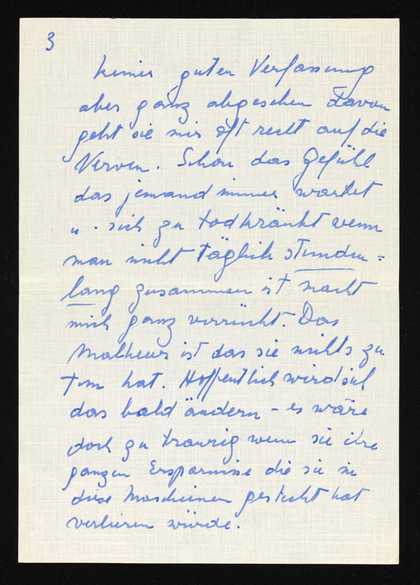 3
keiner guten Verfassung
aber ganz abgesehen davon
geht sie mir oft recht auf die
Nerven. Schon das Gefühl
das jemand immer wartet
u. sich zu todkränkt wenn
man nicht täglich stunden=
lang zusammen ist macht
mich ganz verrückt. Das
Malheur ist das sie nichts zu
tun hat. Hoffentlich wird sich
das bald ändern - es wäre
doch zu traurig wenn sie ihre
ganzen Ersparnisse die sie in
diese Maschienen gesteckt hat
verlieren würde.